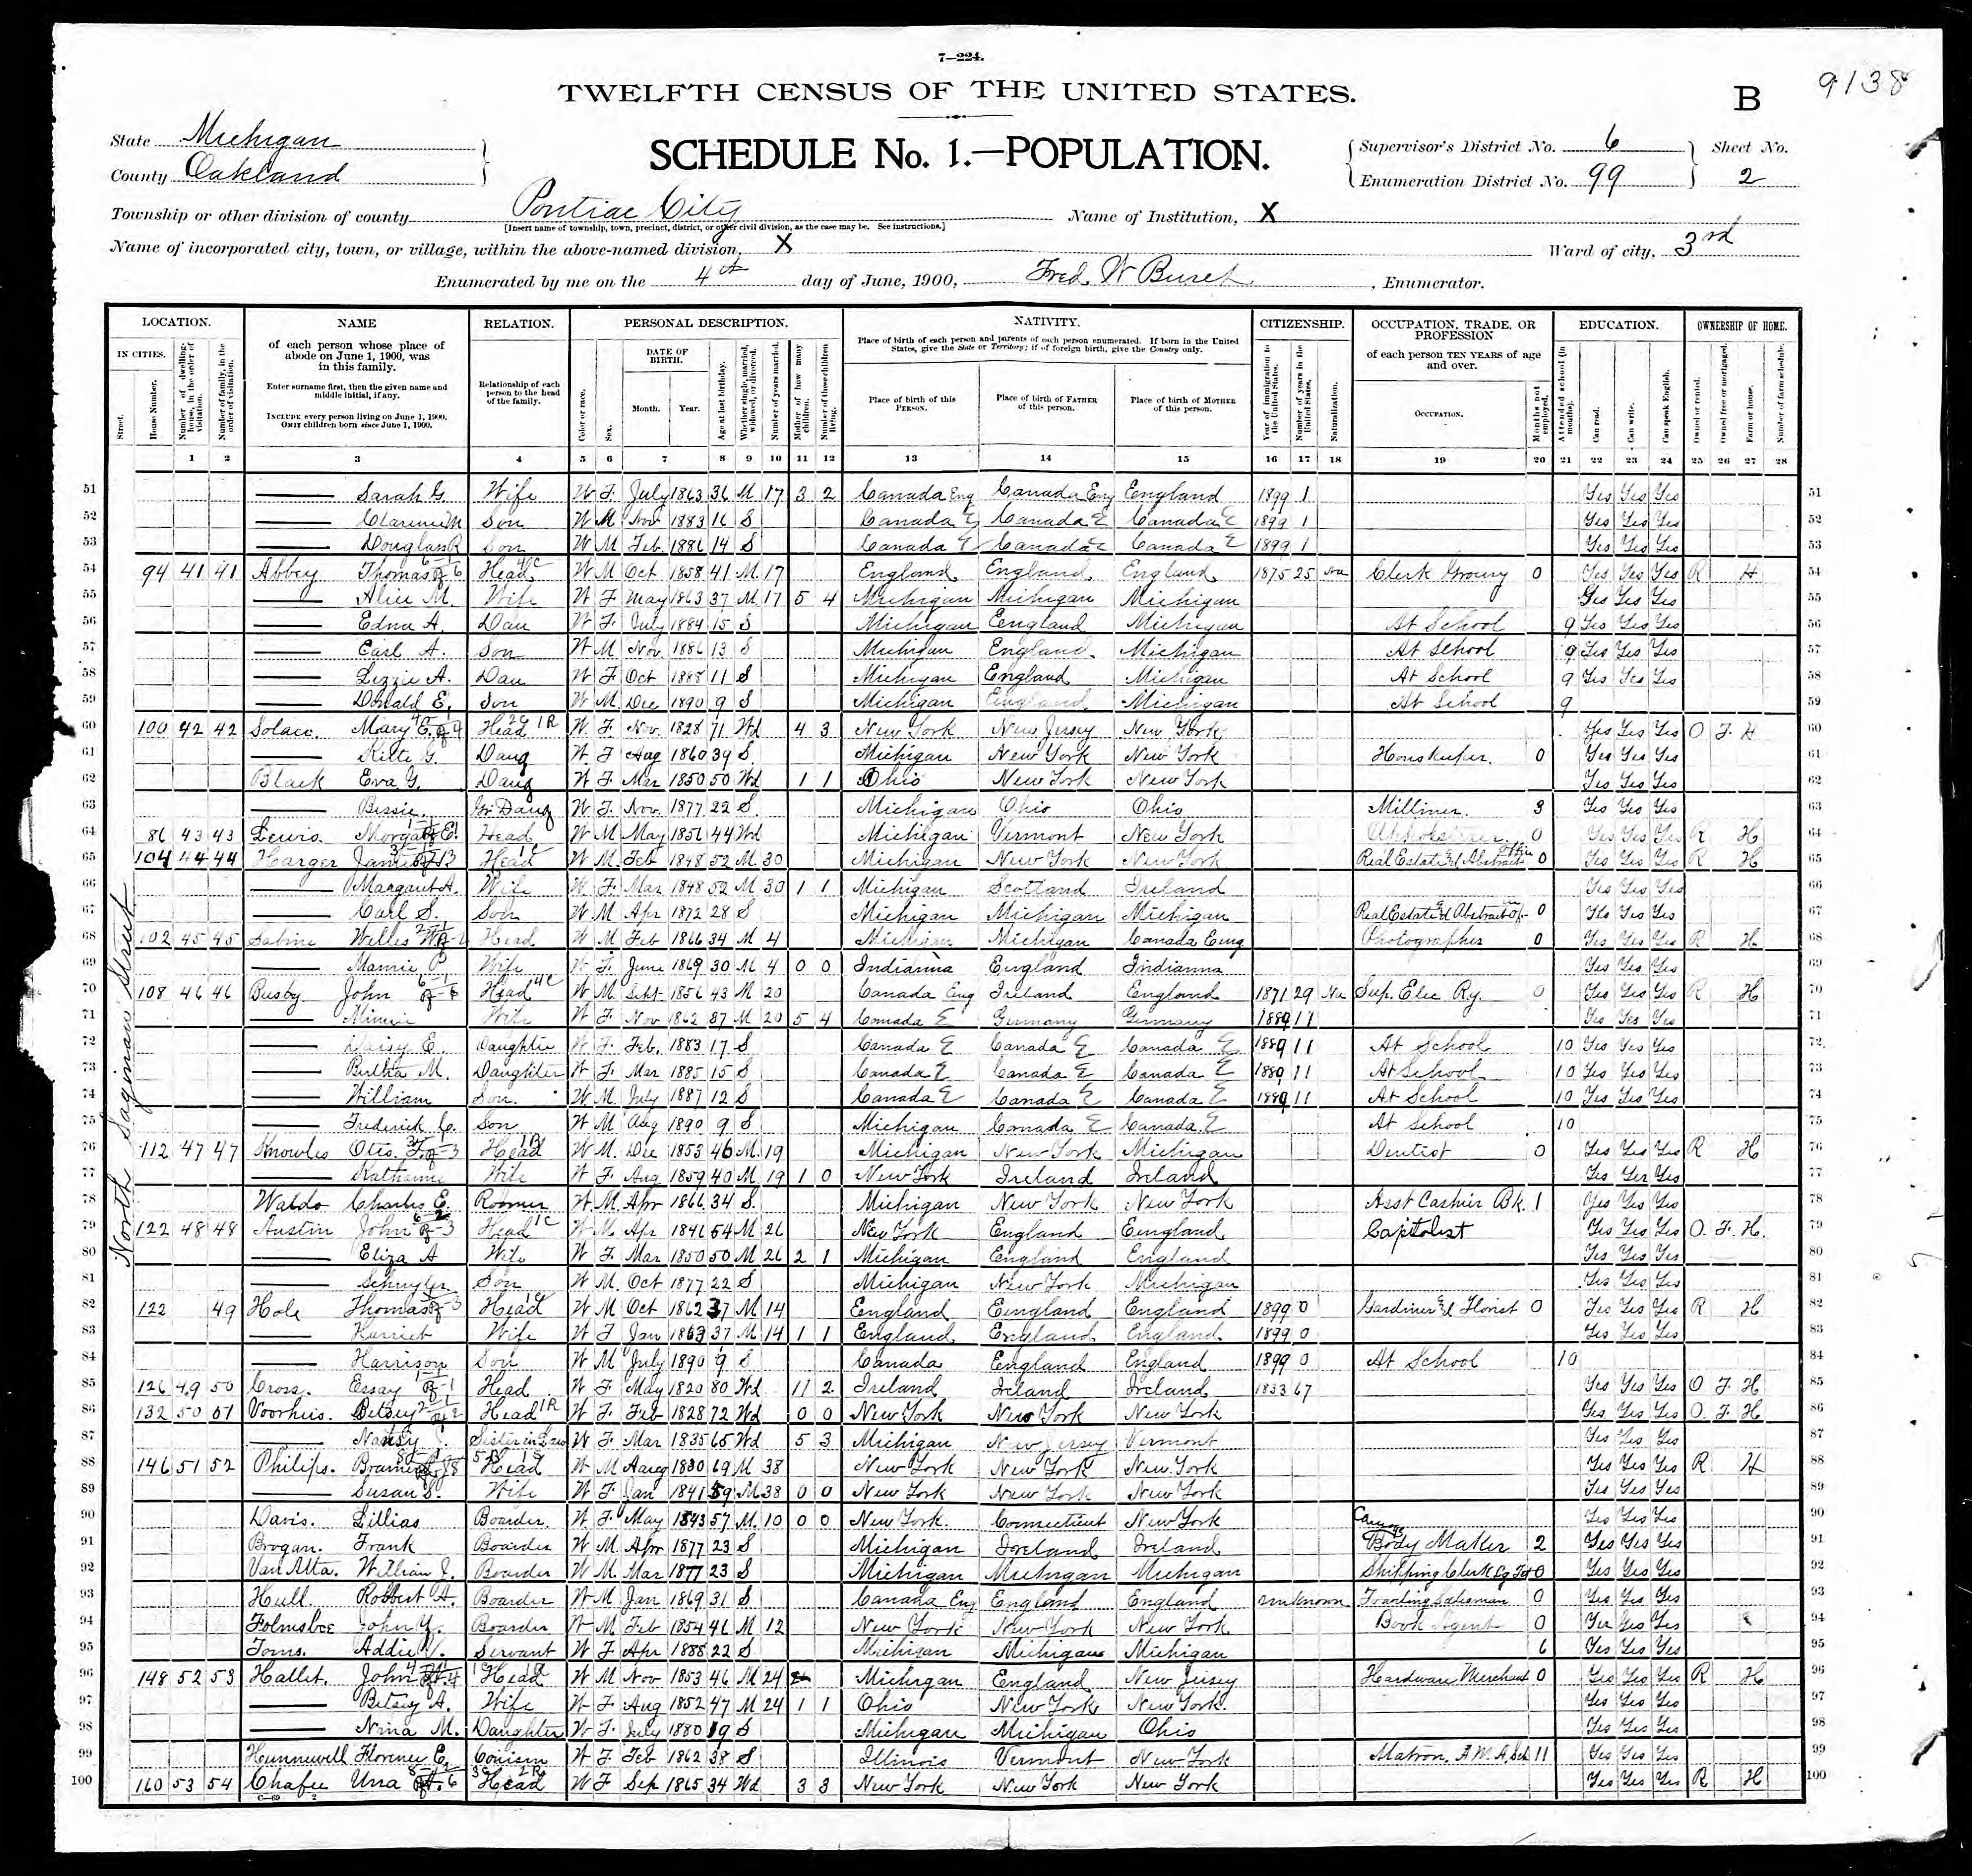 7—224.
9138
TWELFTH CENSUS OF THE UNITED STATES.
B
State Michigan
County Oakland
SCHEDULE No. 1.—POPULATION.
Supervisor's District No. 6
Enumeration District No. 99
Sheet No. 2
Township or other division of county Pontiac City
Name of Institution, X
[Insert name of township, town, precinct, district, or other civil division, as the case may be. See instructions.]
Name of incorporated city, town, or village, within the above-named division, X
Ward of city, 3rd
Enumerated by me on the 4th day of June, 1900, Fred W , Enumerator.
LOCATION. NAME RELATION. PERSONAL DESCRIPTION. NATIVITY. CITIZENSHIP. OCCUPATION, TRADE, OR PROFESSION EDUCATION. OWNERSHIP OF HOME.
IN CITIES.
Street.
House Number.
Number of dwelling-house, in the order of visitation.
Number of family, in the order of visitation.
of each person whose place of abode on June 1, 1900, was in this family.
Enter surname first, then the given name and middle initial, if any.
INCLUDE every person living on June 1, 1900.
OMIT children born since June 1, 1900.
Relationship of each person to the head of the family.
Color or race.
Sex.
DATE OF BIRTH.
Month. Year.
Age at last birthday.
Whether single, married, widowed, or divorced.
Number of years married.
Mother of how many children.
Number of these children living.
Place of birth of each person and parents of each person enumerated. If born in the United States, give the State or Territory; if of foreign birth, give the Country only.
Place of birth of this PERSON.
Place of birth of FATHER of this person.
Place of birth of MOTHER of this person.
Year of immigration to the United States.
Number of years in the United States.
Naturalization.
of each person TEN YEARS of age and over.
OCCUPATION.
Months not employed.
Attended school (in months).
Can read.
Can write.
Can speak English.
Owned or rented.
Owned free or mortgaged.
Farm or house.
Number of farm schedule.
1 2 3 4 5 6 7 8 9 10 11 12 13 14 15 16 17 18 19 20 21 22 23 24 25 26 27 28
North Saginaw Street
51 Sarah G. Wife W F July 1863 36 M 17 3 2 Canada Eng Canada Eng England 1899 1 Yes Yes Yes 51
52 Clarence M Son W M Nov 1883 16 S Canada E Canada E Canada E 1899 1 Yes Yes Yes 52
53 Douglass R Son W M Feb. 1886 14 S Canada E Canada E Canada E 1899 1 Yes Yes Yes 53
54 94 41 41 Abbey Thomas Head W M Oct 1858 41 M 17 England England England 1875 25 Na Clerk Grocery 0 Yes Yes Yes R H 54
55 Alice M. Wife W F May 1863 37 M 17 5 4 Michigan Michigan Michigan Yes Yes Yes 55
56 Edna A. Dau W F July 1884 15 S Michigan England Michigan At School 9 Yes Yes Yes 56
57 Earl A. Son W M Nov. 1886 13 S Michigan England. Michigan At School 9 Yes Yes Yes 57
58 Lizzie A. Dau W F Oct 1888 11 S Michigan England Michigan At School 9 Yes Yes Yes 58
59 Donald E. Son W M Dec 1890 9 S Michigan England Michigan At School 9 59
60 100 42 42 Mary E. Head W F. Nov. 1828 71 Wd 4 3 New York New Jersey New York Yes Yes Yes O F H 60
61 G. Daug W F Aug 1860 39 S Michigan New York New York Housekeeper. 0 Yes Yes Yes 61
62 Black Eva G. Daug W F Mar 1850 50 Wd 1 1 Ohio New York New York Yes Yes Yes 62
63 Bessie Gr Daug W F. Nov. 1877 22 S Michigan Ohio Ohio Milliner. 3 Yes Yes Yes 63
64 86 43 43 Lewis. Morgan E. Head W M May 1856 44 Wd Michigan Vermont New York 0 Yes Yes Yes R H 64
65 104 44 44 Harger Head W M. Feb 1848 52 M 30 Michigan New York New York Real Estate & Abstract Office 0 Yes Yes Yes R H 65
66 Margaret A. Wife W F. Mar 1848 52 M 30 1 1 Michigan Scotland Ireland Yes Yes Yes 66
67 Carl S. Son W M Apr 1872 28 S Michigan Michigan Michigan Real Estate & Abstract 0 Yes Yes Yes 67
68 102 45 45 Sabine Willes Head W M Feb 1866 34 M 4 Michigan Michigan Canada Eng Photographer 0 Yes Yes Yes R H 68
69 Mamie P. Wife W F. June 1869 30 M 4 0 0 Indianna England Indianna Yes Yes Yes 69
70 108 46 46 Busby John Head W M. Sept 1856 43 M 20 Canada Eng Ireland England 1871 29 Na Sup. Elec Ry. 0 Yes Yes Yes R H 70
71 Minnie Wife W F Nov 1862 37 M 20 5 4 Canada E Germany Germany 1889 11 Yes Yes Yes 71
72 Daisy E. Daughter W F. Feb. 1883 17 S Canada E Canada E Canada E 1889 11 At School 10 Yes Yes Yes 72
73 Bertha M. Daughter W F. Mar 1885 15 S Canada E Canada E Canada E 1889 11 At School 10 Yes Yes Yes 73
74 William Son. W M July 1887 12 S Canada E Canada E Canada E 1889 11 At School 10 Yes Yes Yes 74
75 Frederick C. Son W M Aug 1890 9 S Michigan Canada E Canada E At School 10 75
76 112 47 47 Knowles Otis F. Head W M. Dec 1853 46 M. 19 Michigan New York Michigan Dentist 0 Yes Yes Yes R H 76
77 Katharine Wife W F. Aug 1859 40 M. 19 1 0 New York Ireland Ireland Yes Yes Yes 77
78 Waldo Charles E. Roomer W M. Apr 1866 34 S. Michigan New York New York Asst Cashier Bk. 1 Yes Yes Yes 78
79 122 48 48 Austin John Head W M. Apr 1846 54 M 26 New York England England Capitolist Yes Yes Yes O. F. H. 79
80 Eliza A Wife W F. Mar 1850 50 M 26 2 1 Michigan England England Yes Yes Yes 80
81 Schuyler. Son W M. Oct 1877 22 S Michigan New York Michigan Yes Yes Yes 81
82 122 49 Hole Thomas Head W M Oct 1862 37 M 14 England England England 1899 0 Gardiner & Florist 0 Yes Yes Yes R H 82
83 Harriet Wife W F Jan 1863 37 M 14 1 1 England England England 1899 0 Yes Yes Yes 83
84 Harrison Son W M July 1890 9 S Canada England England 1899 0 At School 10 84
85 126 49 50 Cross. Essay Head W F May 1820 80 Wd 11 2 Ireland Ireland Ireland 1833 67 Yes Yes Yes O F H 85
86 132 50 51 Voorheis. Betsey Head W F. Feb 1828 72 Wd 0 0 New York New York New York Yes Yes Yes O. F. H 86
87 Nancy Sister in Law W F. Mar 1835 65 Wd 5 3 Michigan New Jersey Vermont Yes Yes Yes 87
88 146 51 52 Philips. Head W M Aug 1830 69 M 38 New York New York New York Yes Yes Yes R H 88
89 Susan S. Wife W F. Jan 1841 59 M 38 0 0 New York New York New York Yes Yes Yes 89
90 Davis. Lillias Boarder. W F. May 1843 57 M. 10 0 0 New York. Connecticut New York Yes Yes Yes 90
91 Brogan. Frank Boarder W M. Apr 1877 23 S Michigan Ireland Ireland Carriage Body Maker 2 Yes Yes Yes 91
92 Van Atta. William J. Boarder W M. Mar 1877 23 S Michigan Michigan Michigan Shipping Clerk 0 Yes Yes Yes 92
93 Hull. Robbert A. Boarder W M. Jan 1869 31 S Canada Eng England England unknown Traveling Salesman 0 Yes Yes Yes 93
94 Folmsbee John Y. Boarder W M Feb 1854 46 M 12 New York New York New York Book Agent 0 Yes Yes Yes 94
95 Toms. Addie V. Servant W F. Apr 1888 22 S Michigan Michigan Michigan 6 Yes Yes Yes 95
96 148 52 53 Hallet. John Head W M Nov 1853 46 M 24 Michigan England New Jersey Hardware Merchant 0 Yes Yes Yes R H 96
97 Betsey A. Wife W F. Aug 1852 47 M 24 1 1 Ohio New York New York. Yes Yes Yes 97
98 Nina M. Daughter W F. July 1880 19 S Michigan Michigan Ohio Yes Yes Yes 98
99 Hunnewell Florence E. Cousin W F Feb 1862 38 S Illinois Vermont New York Matron, A.M.A. Sch 11 Yes Yes Yes 99
100 160 53 54 Chafee Una Head W F Sep 1865 34 Wd 3 3 New York New York New York Yes Yes Yes R H 100
C—69 2